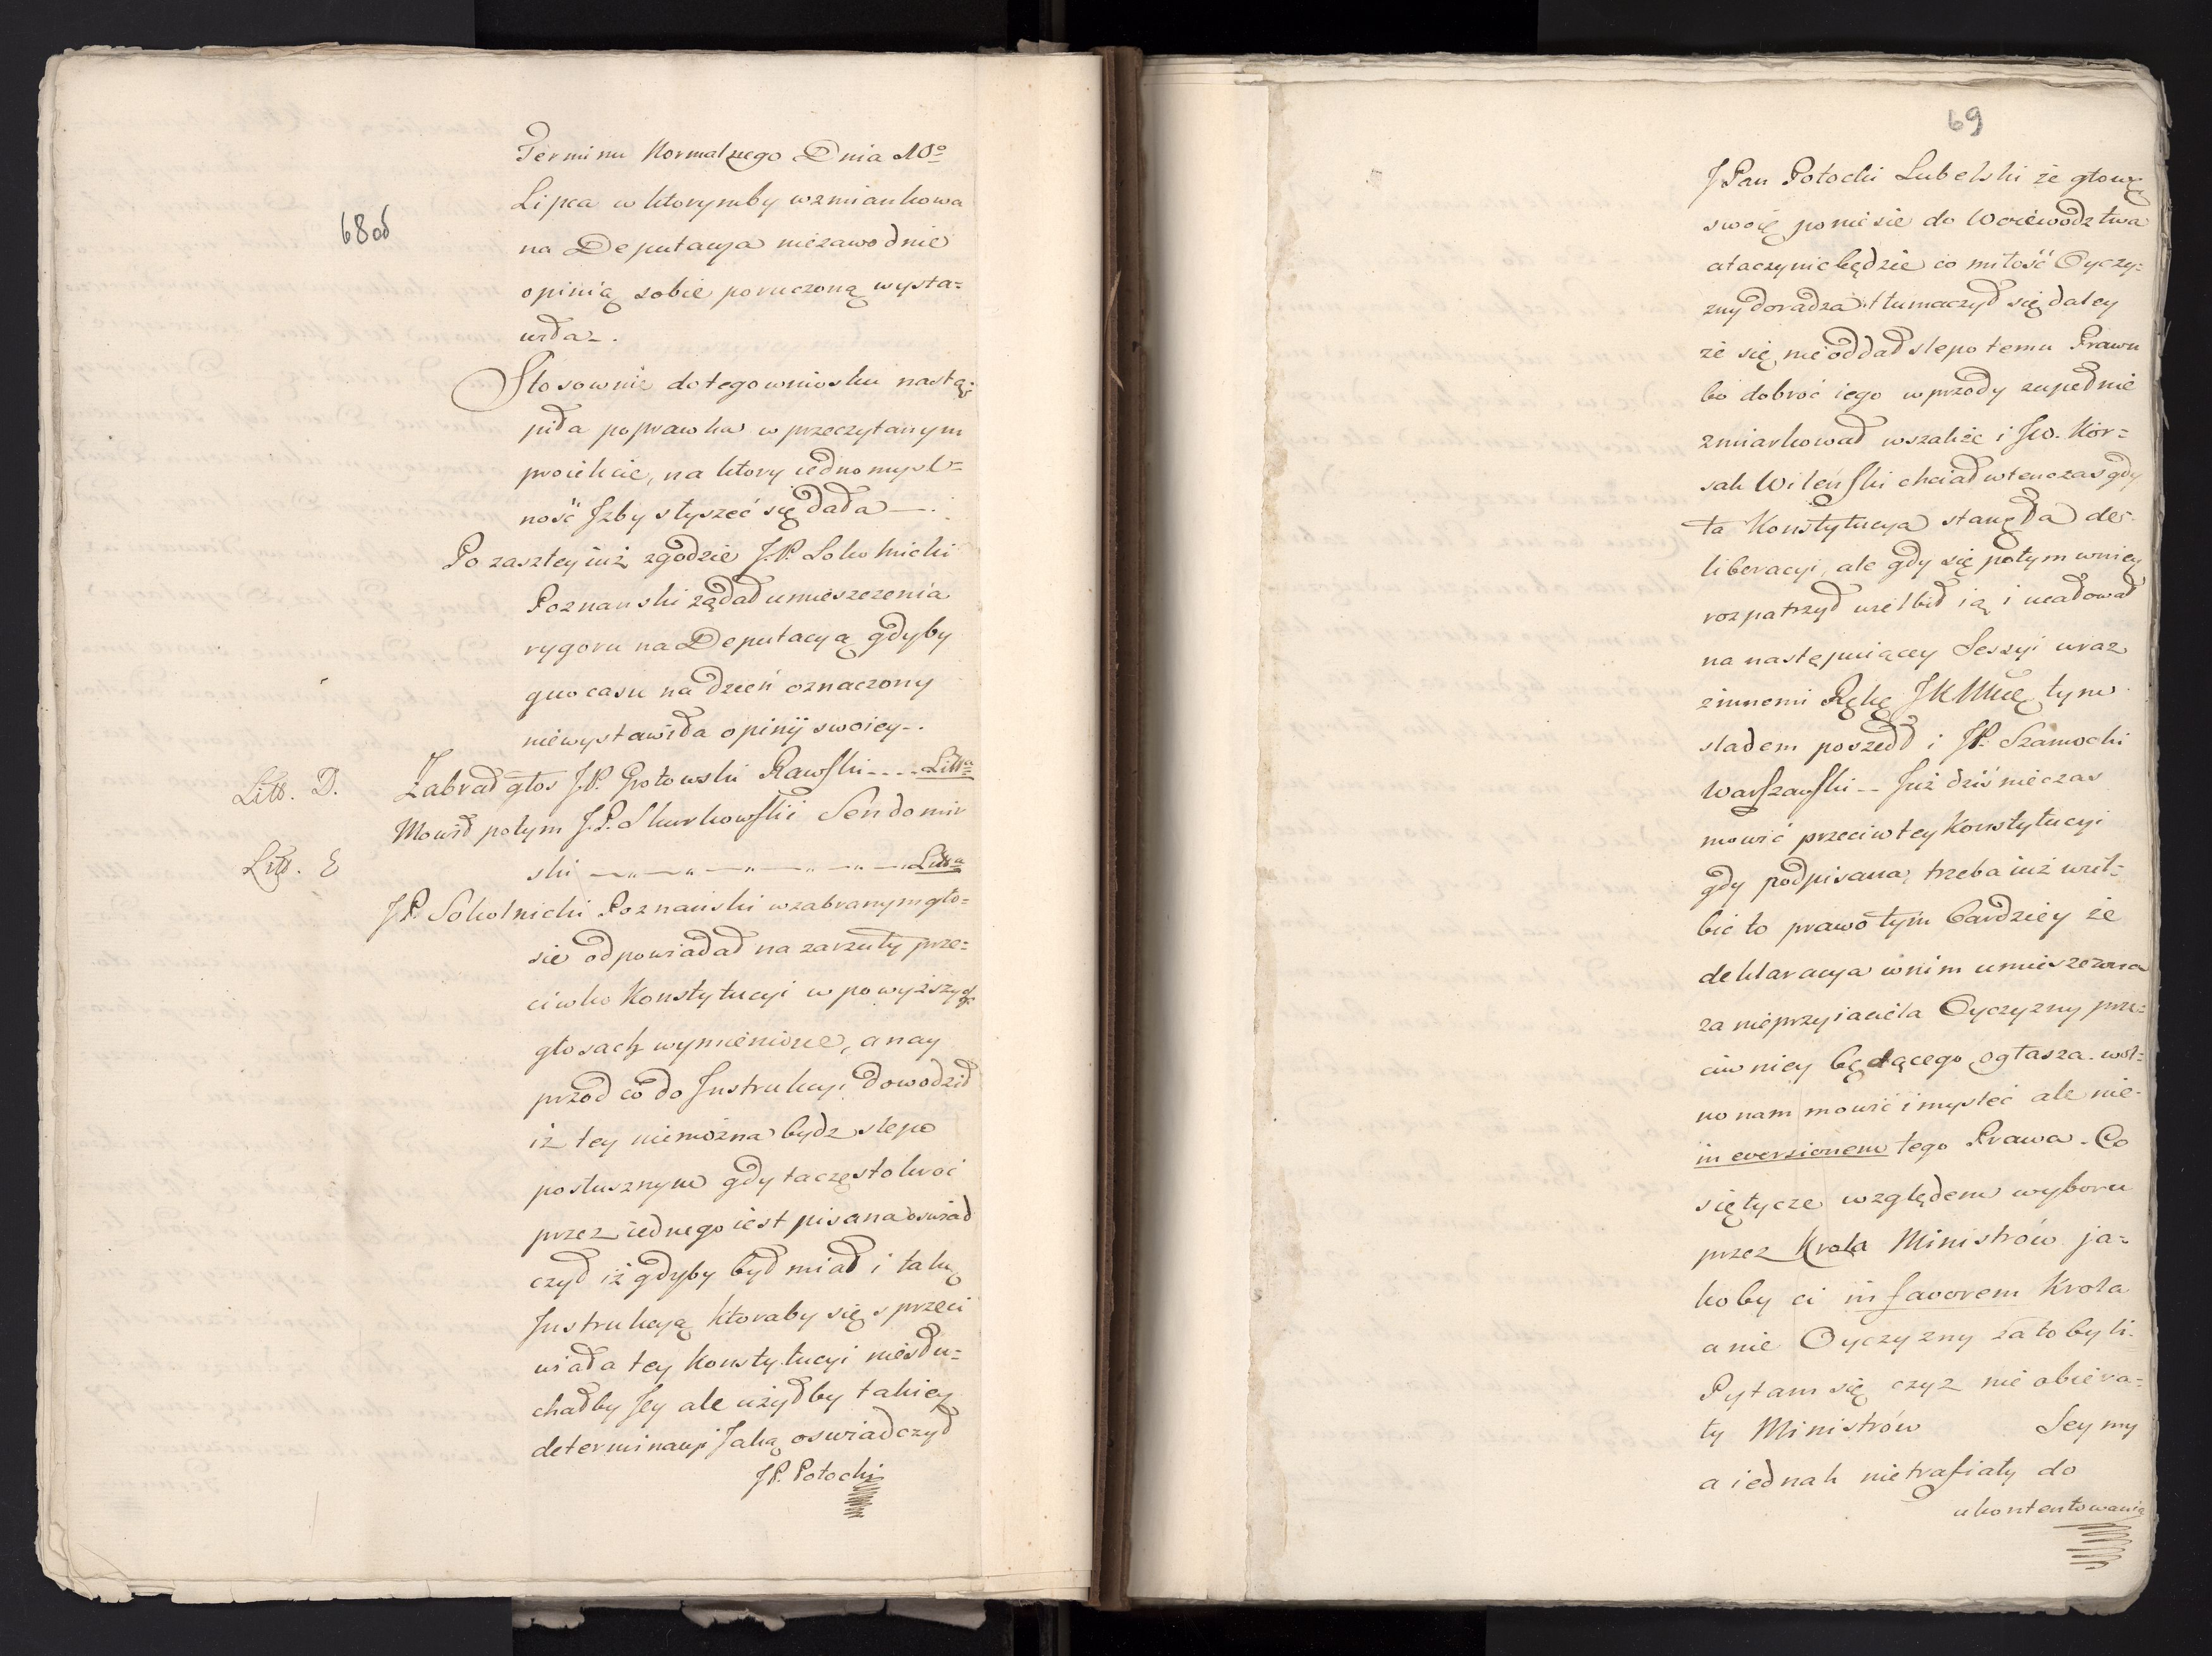 68od
Terminu Normalnego Dnia 10º
Lipca w ktorymby wzmiankowa
na Deputacya niezawodnie
opinią sobie poruczoną wysta=
wiła.
Stosownie do tego wniosku nastą=
piła poprawka w przeczytanym
proiekcie, na ktory iednomysl=
ność Izby słyszeć się dała —.
Po zaszłey iuż zgodzie J.P. Sokolnicki
Poznanski żądał umieszczenia
rygoru na Deputacyą gdyby
quo casu na dzień oznaczony
niewystawiła opinii swoiey -.
Litt. D. Zabrał głos J.P. Grotowski Rawski - - - - Litt
Mowił potym J.P. Skurkowski Sendomir
Litt. E ski — „ — „ — „ — „ — „ — Litt
J.P. Sokolnicki Poznański w zabranym gło=
sie odpowiadał na zarzuty prze=
ciwko Konstytucyi w powyższych
głosach wymienione, a nay
przod co do Instrukcyi dowodził
iż tey niemożna bydz slepo
posłusznym gdy ta częstokroć
przez iednego iest pisana oswiad
czył iż gdyby był miał i taką
Instrukcyą ktoraby się sprzeci
wiała tey Konstytucyi niesłu=
chałby Jey ale użyłby takiey
determinacyi Jaką oswiadczył
J.P. Potocki
69
J Pan Potocki Lubelski że głowę
swoię poniesie do Woiewodztwa
a ta czynic będzie co miłość Oyczy=
zny doradza: tłumaczył się daley
że się nie oddał slepo temu Prawu
bo dobroć iego wprzody zupełnie
zmiarkował wszakże i JW. Kor=
sak Wileński chciał wtenczas gdy
ta Konstytucya stanęła de=
liberacyi, ale gdy się potym w niey
rozpatrzył wielbił ią i ucałował
na następuiącey Sessyi wraz
z innemi Rękę JKMci tym
sladem poszedł i JP. Szamocki
Warszawski -- Już dziś nie czas
mowić przeciw tey Konstytucyi
gdy podpisana, trzeba iuż wiel=
bic to prawo tym bardziey że
deklaracya w nim umieszczona
za nieprzyiaciela Oyczyzny prze=
ciw niey będącego ogłasza. wol=
no nam mowić i mysleć ale nie
in eversionem tego Prawa. Co
się tycze względem wyboru
przez Krola Ministrów ja=
koby ci in favorem Krola
a nie Oyczyzny za to byli.
Pytam się czyz nie obiera=
ły Ministrów Seymy
a iednak nietrafiały do
ukontentowania